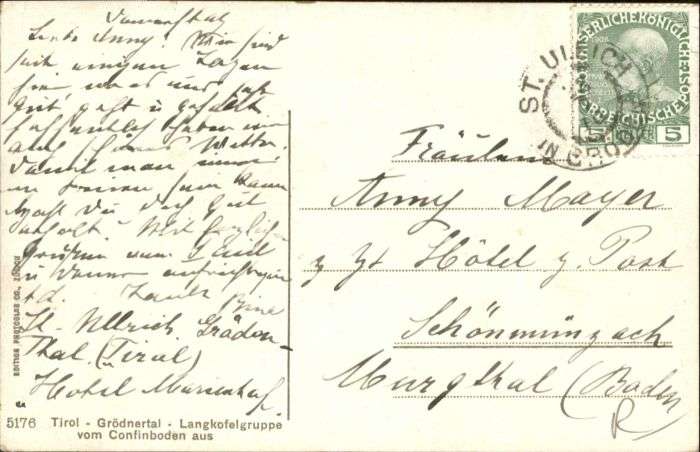 Donnerstag
Liebe Anny! Wir sind
seit einigen Tagen
hier wo es uns sehr
gut gefällt
hoffentlich haben wir
auch schönes Wetter
damit man immer
im Freien sein kann
Hast Du Dich gut
erholt? Mit herzlichen
Grüßen
u.
St. Ullrich Gröden-
Thal. (Tirol)
Hotel Marienhof.
EDITION PHOTOGLOB CO., ZÜRICH
5176 Tirol - Grödnertal - Langkofelgruppe
vom Confinboden aus
KAISERLICHEKÖNIGLICHE
1908
ÖSTERREICHISCHE
5 5
ST. ULRICH
IN GRÖDEN
Fräulein
Anny Mayer
z Zt Hôtel z. Post
Schönmünzach
Murgthal (Baden)
R